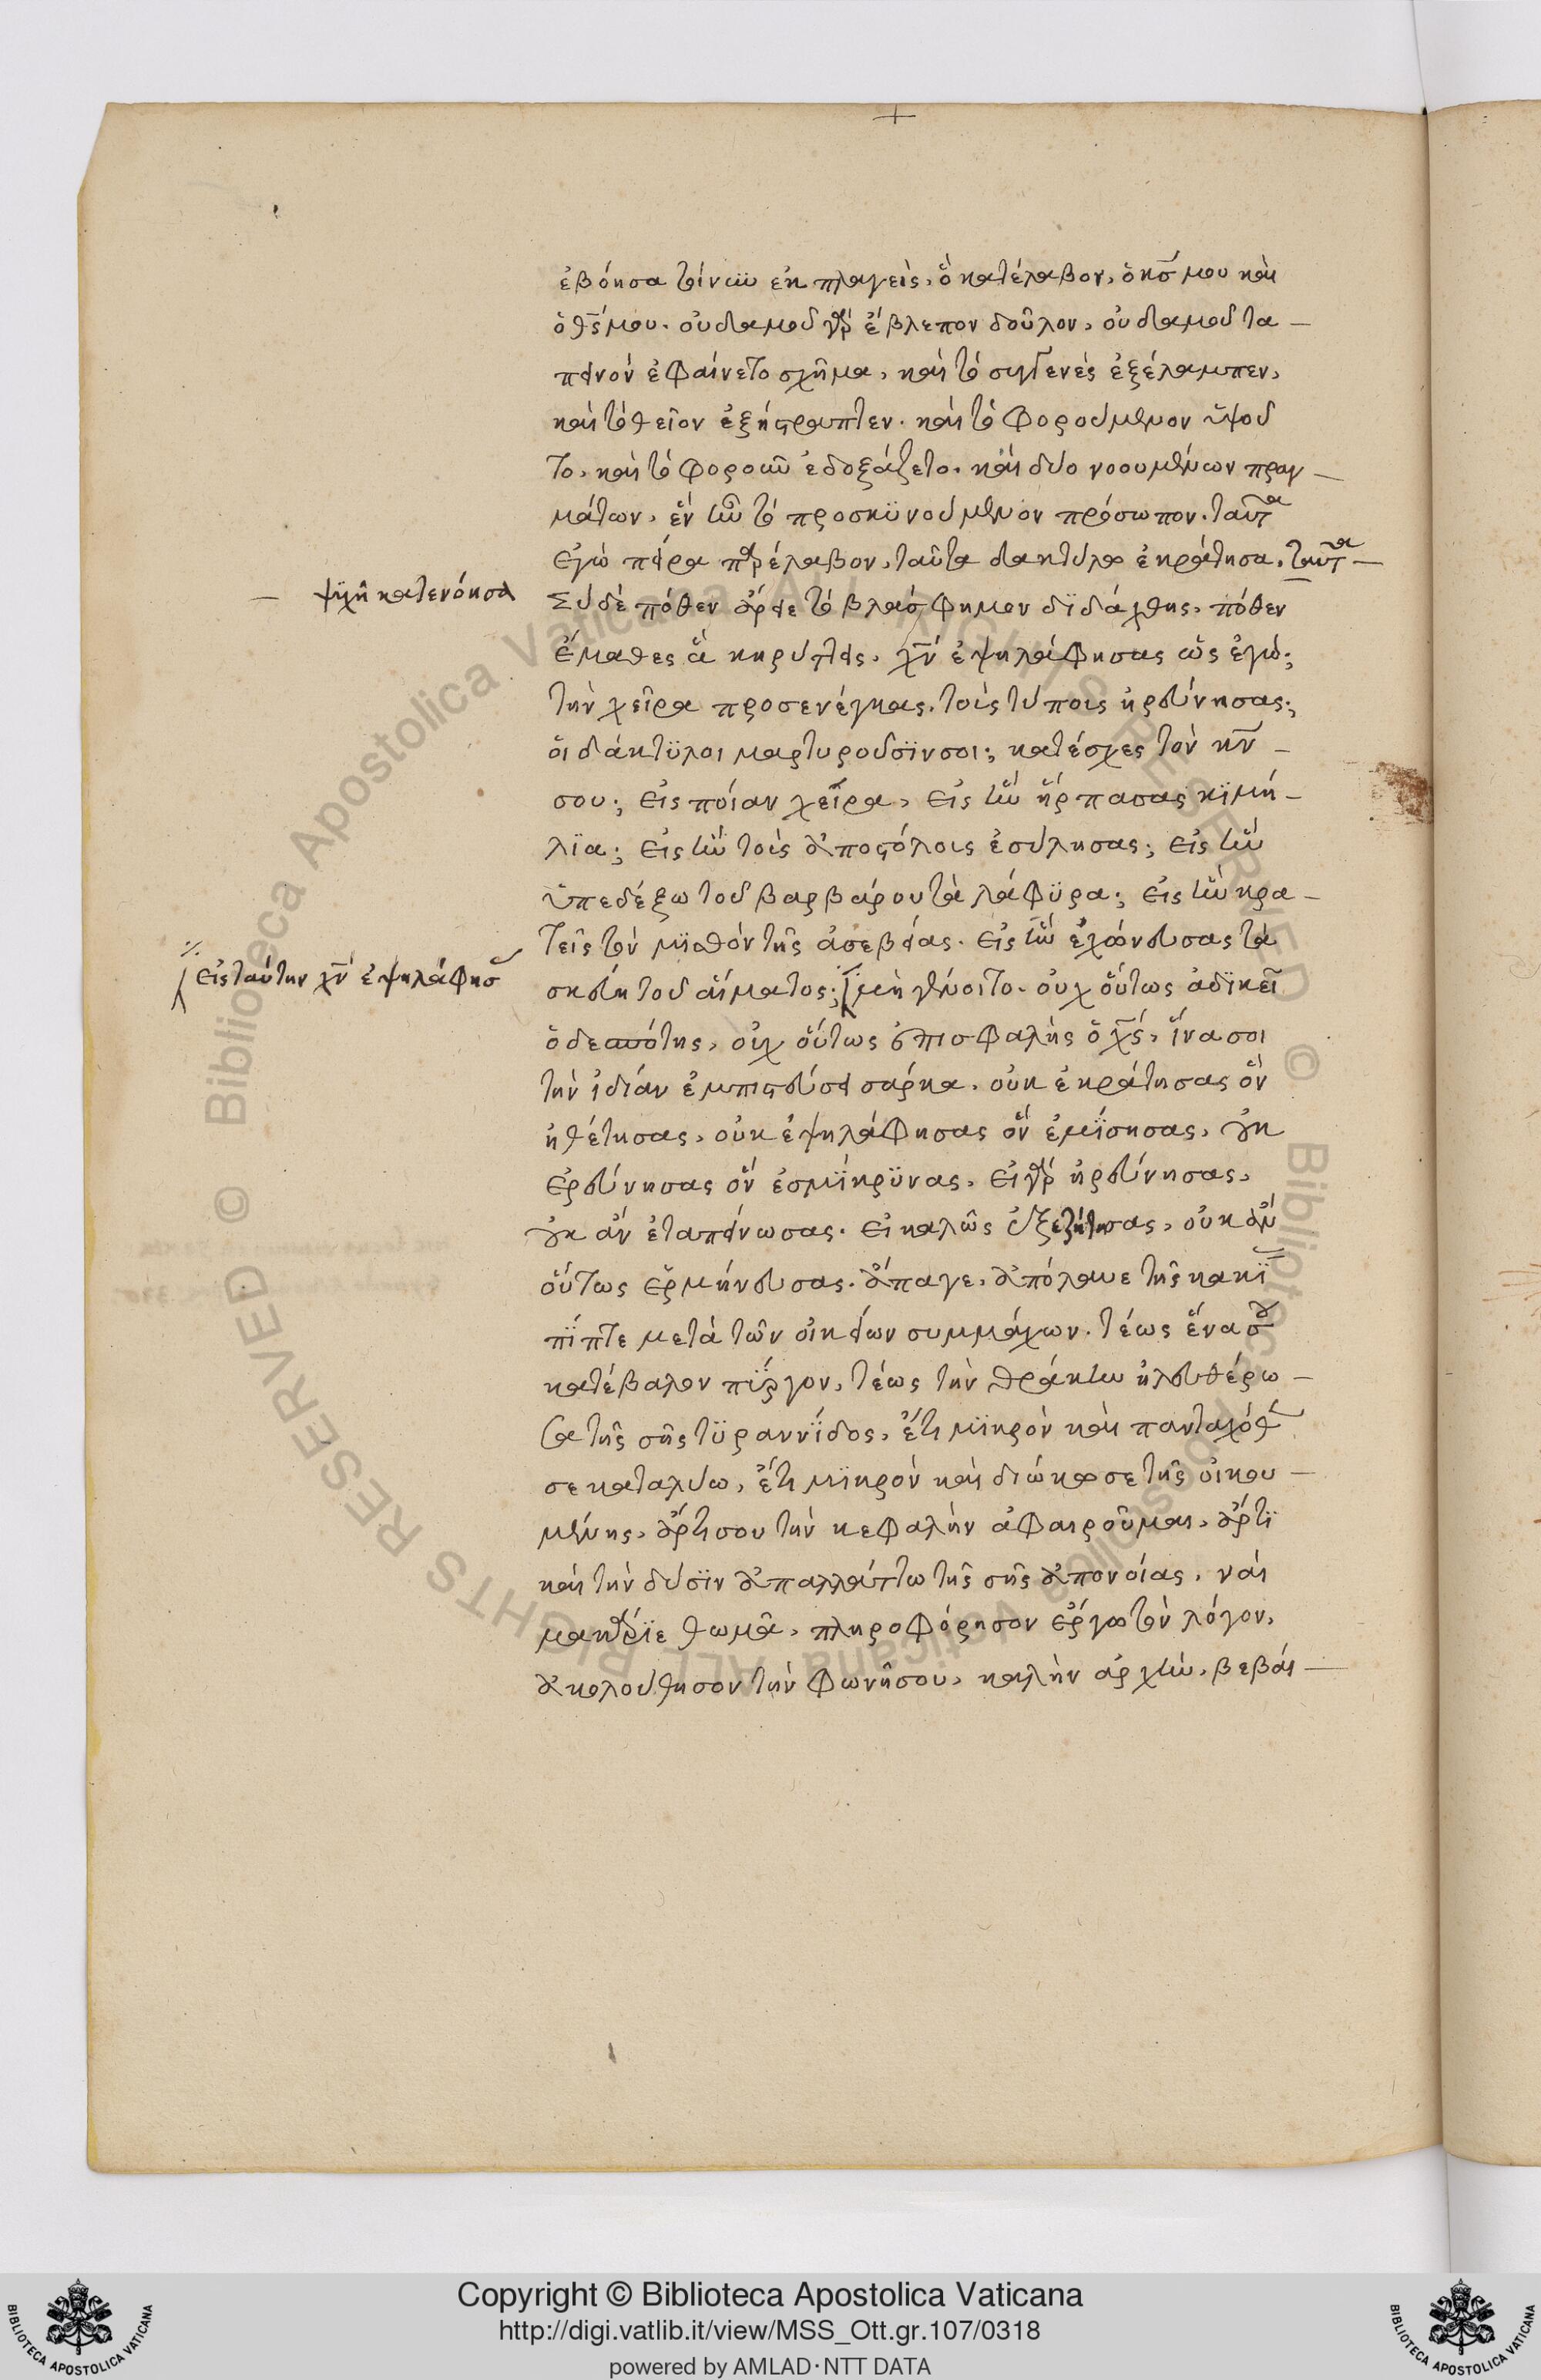 ἐβόησα τίνων ἐκπλαγεὶς, ὃ κατέλαβον, ὁ κσ μου καὶ
ὁ θσ μου. οὐδαμοῦ γὰρ ἔβλεπον δοῦλον, οὐδαμοῦ τα –
πεινὸν ἐφαίνετο σχῆμα, καὶ τὸ συγγενὲς ἐξέλαμπεν,
καὶ τὸ θεῖον ἐξήστραπτεν. καὶ τὸ φορούμενον ὑψοῦ
το, καὶ τὸ φοροῦν ἐδοξάζετο. καὶ δύο νοουμένων πραγ –
μάτων, ἓν ἦν τὸ προσκϋνούμενον πρόσωπον. ταῦτα
ἐγὼ πείρα παρέλαβον, ταῦτα δακτύλω ἐκράτησα, ταῦτα –
– ψϋχῆ κατενόησα
Σὺ δὲ πόθεν ἄρειε τὸ βλάσφημον δϊδάχθης, πόθεν
ἔμαθες ἃ κηρύττεις, χν ἐψηλάφησας ὡς ἐγώ;
τὴν χεῖρα προσενέγκας, τοὶς τύποις ἠρεύνησας;
οἱ δάκτϋλοι μαρτυροῦσϊν σοι; κατέσχες τὸν κν –
σου; εἰς ποίαν χεῖρα, εἰς ἣν ἥρπασας κϊμή –
λϊα; εἰς ἣν τοὶς ἀποστόλοις ἐσύλησας; εἰς ἣν
ὑπεδέξω τοῦ βαρβάρου τὰ λάφϋρα; εἰς ἣν κρα –
τεῖς τὸν μϊσθὸν τῆς ἀσεβείας. εἰς ἣν ἐχώνευσας τὰ
σκεύη τοῦ αἵματος; μὴ γένοιτο. οὐχ οὕτως ἀδϊκεῖ
εἰς ταύτην χν ἐψηλάφησ
ὁ δεσπότης, οὐχ οὕτως ἐπισφαλὴς ὁ χσ, ἵνα σοι
τὴν ἰδίαν ἐμπιστεύσει σάρκα. οὐκ ἐκράτησας ὃν
ἠθέτησας, οὐκ ἐψηλάφησας ὃν ἐμϊσησας, οὐκ
ἐρεύνησας ὃν ἐσμϊκρϋνας, εἰ γὰρ ἠρεύνησας,
οὐκ ἂν ἐταπείνωσας. εἰ καλῶς ἐξεζήτησας, οὐκ ἂν
οὕτως ἑρμήνευσας. ἄπαγε, ἀπόλαυε τῆς κακϊ
πϊπτε μετὰ τῶν οἰκείων συμμάχων. τέως ἕνα σου
κατέβαλον πϋργον, τέως τὴν θράκην ἠλευθέρω –
σα τῆς σῆς τϋραννϊδος, ἔτι μϊκρὸν καὶ πανταχόθεν
σε καταλύω, ἔτι μϊκρὸν καὶ διώκω σε τῆς οἰκου –
μένης, ἄρτι σου τὴν κεφαλὴν ἀφαιροῦμαι, ἄρτϊ
καὶ τὴν δύσϊν ἀπαλλάττω τῆς σῆς ἀπονοίας, ναὶ
μακάρϊε θωμᾶ, πληροφόρησον ἔργω τὸν λόγον,
ἀκολούθησον τὴν φωνῆ σου, καλὴν ἀρχὴν, βεβαι –
Copyright © Biblioteca Apostolica Vaticana
http://digi.vatlib.it/view/MSS_Ott.gr.107/0318
powered by AMLAD·NTT DATA